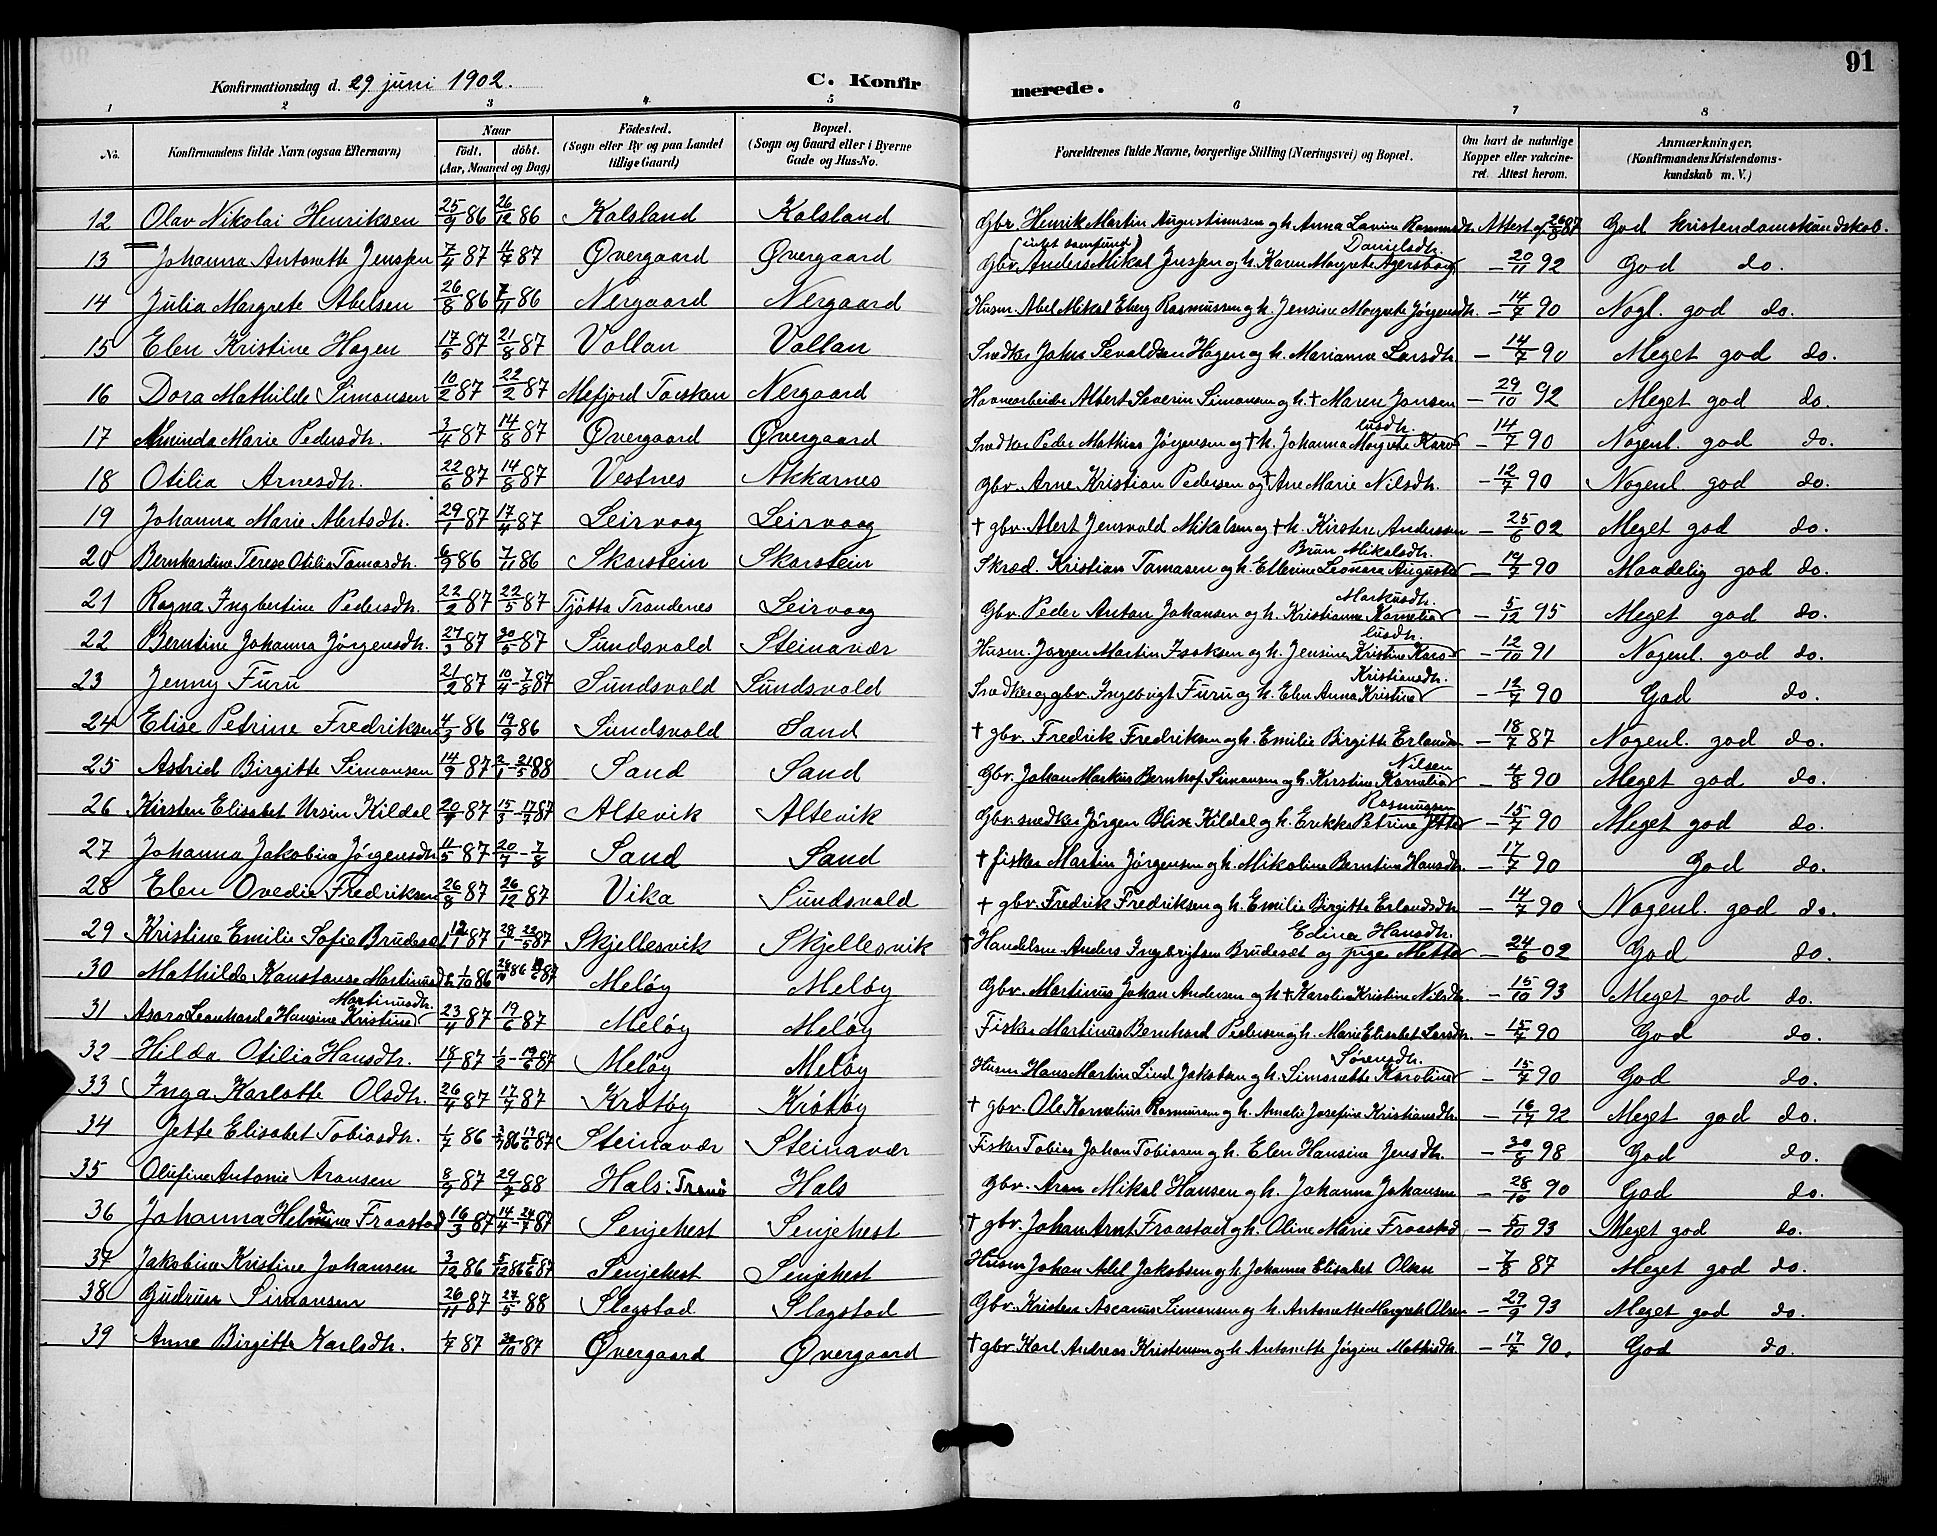 91
Konfirmationsdag d. 29 juni 1902. C. Konfirmerede.
1 2 3 4 5 6 7 8
No. Konfirmandens fulde Navn (ogsaa Efternavn) Naar födt. döbt. (Aar, Maaned og Dag) Födested. (Sogn eller By og paa Landet tillige Gaard) Bopæl. (Sogn og Gaard eller i Byerne Gade og Hus-No. Forældrenes fulde Navne, borgerlige Stilling (Næringsvei) og Bopæl. Om havt de naturlige Kopper eller vakcineret. Attest herom. Anmærkninger. (Konfirmandens Kristendomskundskab m. V.)
12 Olav Nikolai Henriksen 25/9 86 26/12 86 Kalsland Kalsland Gbr. Henrik Martin Augustinussen og h. Anna Lavina Rasmusdtr. Attest af 26/8 87 God Kristendomskundskab.
13 Johanna Antonette Jenssen 7/4 87 11/7 87 Øvergaard Øvergaard (intet samfund) Gbr. Anders Mikal Jenssen og h. Karen Margrete Agersborg Danielsdtr. - 20/11 92 God do.
14 Julia Margrete Abelsen 26/8 86 7/11 86 Nergaard Nergaard Husm. Abel Mikal Eberg Rasmussen og h. Jensine Margrete Jørgensdtr. - 14/7 90 Nogl. god do.
15 Elen Kristine Hagen 17/5 87 21/8 87 Vollan Vollan Snedker Johns Sevaldsen Hagen og h. Marianna Larsdtr. - 14/7 90 Meget god do.
16 Dora Mathilde Simonsen 10/2 87 22/2 87 Mefjord Torsken Nergaard Havnearbeider Albert Severin Simonsen og h. † Maren Jensen - 29/10 92 Meget god do.
17 Aminda Marie Pedersdtr. 3/4 87 14/8 87 Øvergaard Øvergaard Snedker Peder Mathias Jørgensen og † h. Johanna Margrete Karolusdtr. - 14/7 90 Nogenl. god do.
18 Otilia Arnesdtr. 22/6 87 14/8 87 Vestnes Akkarnes Gbr. Arne Kristian Pedersen og † Ane Marie Nilsdtr. - 12/7 90 Nogenl god do.
19 Johanna Marie Alertsdtr. 29/1 87 17/4 87 Leirvaag Leirvaag † gbr. Alert Jensvold Mikalsen og † h. Kirsten Andersson - 25/6 02 Meget god do.
20 Bernhardine Terese Otilia Tomasdtr. 6/9 86 7/11 86 Skarstein Skarstein Skræd. Kristian Tomasen og h. Ellerine Leonora Augusta Brun Mikalsdtr. - 14/7 90 Maadelig god do.
21 Ragna Ingbertine Pedersdtr. 22/2 87 22/5 87 Tjøtta Trondenes Leirvaag Gbr. Peder Antan Johansen og h. Kristianna Kornelia Markusdtr. - 5/12 95 Meget god do.
22 Berntine Johanna Jørgensdtr. 27/3 87 30/5 87 Sundsvold Steinavær Husm. Jørgen Martin Isaksen og h. Jensine Kristine Karolusdtr. - 12/10 91 Nogenl. god do.
23 Jenny Furu 21/2 87 10/4 - 7/8 87 Sundsvold Sundsvold Snedker og gbr. Ingebrigt Furu og h. Elen Anna Kristine Kristiansdtr. - 12/7 90 God do.
24 Elise Petrine Fredriksen 4/3 86 19/9 86 Sundsvold Sand † gbr. Fredrik Fredriksen og h. Emilie Birgitte Erlandsen - 18/7 87 Nogenl. god do.
25 Astrid Birgitte Simonsen 14/9 87 2/1 - 21/5 88 Sand Sand Gbr. Johan Markus Bernhof Simonsen og h. Kirstine Kornelia Nilsen - 4/8 90 Meget god do.
26 Kirsten Elisabet Ursin Kildal 20/4 87 15/5 - 17/7 87 Altevik Altevik Gbr. snedker Jørgen Blix Kildal og h. Erikka Petrine Jette Rasmussen - 15/7 90 Meget god do.
27 Johanna Jakobine Jørgensdtr 11/5 87 20/7 - 7/8 Sand Sand † fisker Martin Jørgensen og h. Mikoline Berntine Hansdtr. - 17/7 90 God do.
28 Elen Ovedie Fredriksen 26/8 87 26/12 87 Vika Sundsvold † gbr. Fredrik Fredriksen og h. Emilie Birgitte Erlandsdtr - 14/7 90 Nogenl. god do.
29 Kristine Emilie Sofie Brudeset 12/1 87 28/1 - 22/5 87 Skjellesvik Skjellesvik † Handelsm. Anders Ingbrigtsen Brudeset og pige Mette Edina Hansdtr. - 24/6 02 God do.
30 Mathilde Konstanse Martinusdtr 1/10 86 24/10 86 19/6 87 Meløy Meløy Gbr. Martinus Johan Andersen og h † Karolia Kristine Nilsdtr. - 15/10 93 Meget god do.
31 Asora Leonharda Hansine Kristine Martinusdtr. 23/4 87 19/6 87 Meløy Meløy Fisker Martinus Bernhard Pedersen og h. Marie Elisabet Larsdtr. - 15/7 90 God do.
32 Hilda Otilia Hansdtr. 18/1 87 1/2 - 19/6 87 Meløy Meløy Husm Hans Martin Lind Jakobsen og h. Simonette Karoline Sørensdtr. - 15/7 90 God do.
33 Inga Karlotte Olsdtr. 26/4 87 17/7 87 Krøtøy Krøtøy † gbr. Ole Kornelius Rasmussen og h. Amalie Josefine Kristiansdtr. - 16/7 92 Meget god do.
34 Jette Elisabet Tobiasdtr. 1/7 86 3/7 86 19/6 87 Steinavær Steinavær Fisker Tobias Johan Tobiasen og h. Elen Hansine Jensdtr. - 30/8 98 God do.
35 Olufine Antonie Aronsen 8/9 87 29/7 88 Hals: Tranø Hals Gbr. Aron Mikal Hansen og h. Johanna Johansen - 28/10 90 God do.
36 Johanna Helmine Fraastad 16/3 87 14/4 - 24/7 87 Senjehest Senjehest † gbr. Johan Arnt Fraastad og h. Oline Marie Fraastad - 5/10 93 Meget god do.
37 Jakobine Kristine Johansen 3/12 86 5/12 86 5/6 87 Senjehest Senjehest Husm Johan Adel Jakobsen og h. Johanna Elisabet Olsen - 7/8 87 Meget god do.
38 Gudrun Simonsen 26/11 87 27/5 88 Slagstad Slagstad Gbr. Kristen Ascanus Simonsen og h. Antonette Margrete Olsen - 29/9 93 Meget god do.
39 Anne Birgitte Karlsdtr. 1/7 87 30/10 87 Øvergaard Øvergaard † gbr. Karl Andreas Kristensen og h Antonette Jørgine Mathisdtr. - 17/7 90. God do.